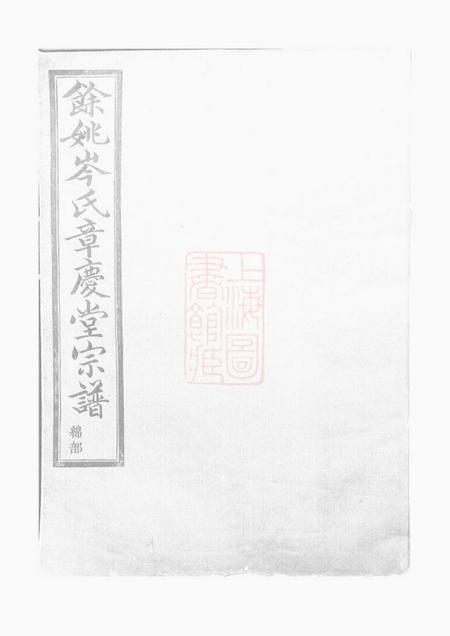 餘姚岑氏章慶堂宗譜
綿部
上海圖
書館藏